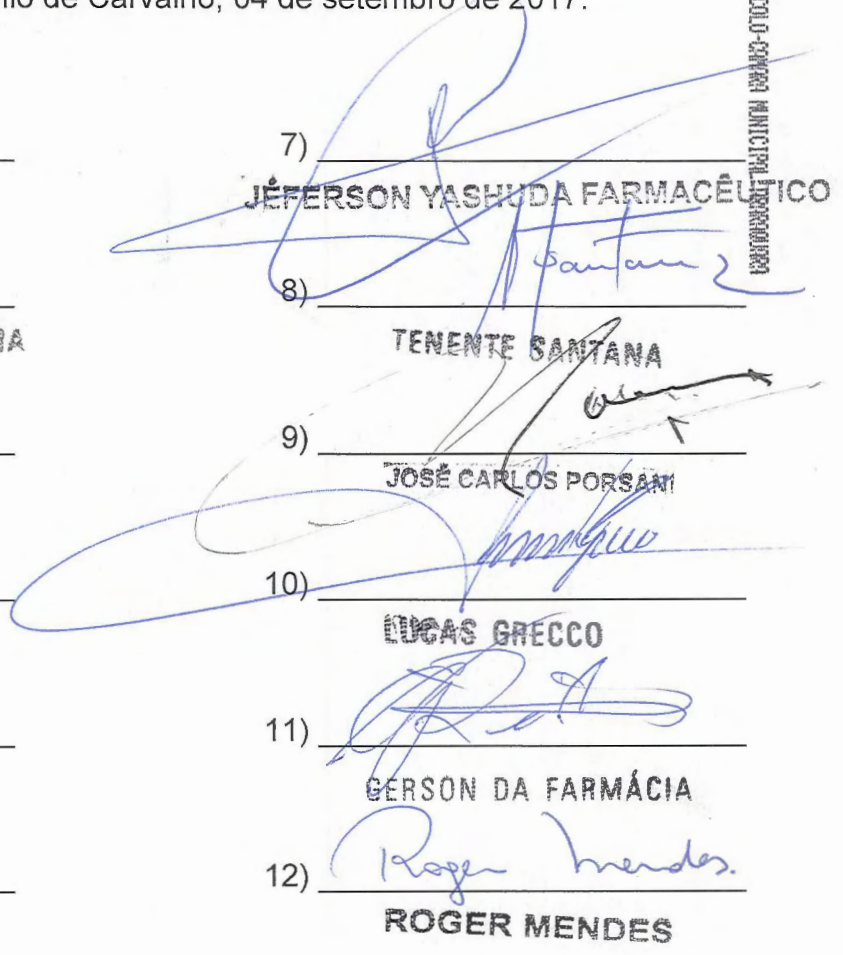 nio de Carvalho, 04 de setembro de 2017.
COLO-CAMARA MUNICIPAL ARARAQUARA
7)
JÉFERSON YASHUDA FARMACÊUTICO
8) Santana
TENENTE SANTANA
RA
9)
JOSÉ CARLOS PORSANI
10)
LUCAS GRECCO
11)
GERSON DA FARMÁCIA
12) Roger Mendes.
ROGER MENDES